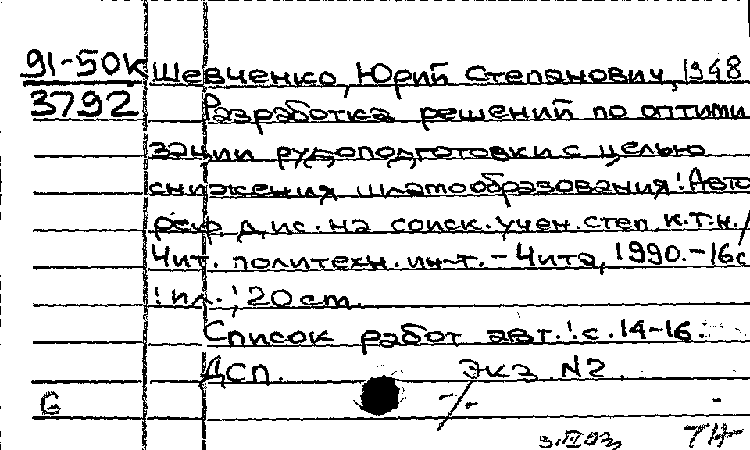 91-50к Шевченко, Юрий Степанович, 1948
3792 Разработка решений по оптими
зации рудоподготовки с целью
снижения шламообразования: Авто
реф. дис. на соиск. учен. степ. к.т.н. /
Чит. политехн. ин-т. - Чита, 1990. - 16с
: ил.; 20 cm.
Список работ авт.: с. 14-16.
ДСП. Экз. N2.
б -/-. -